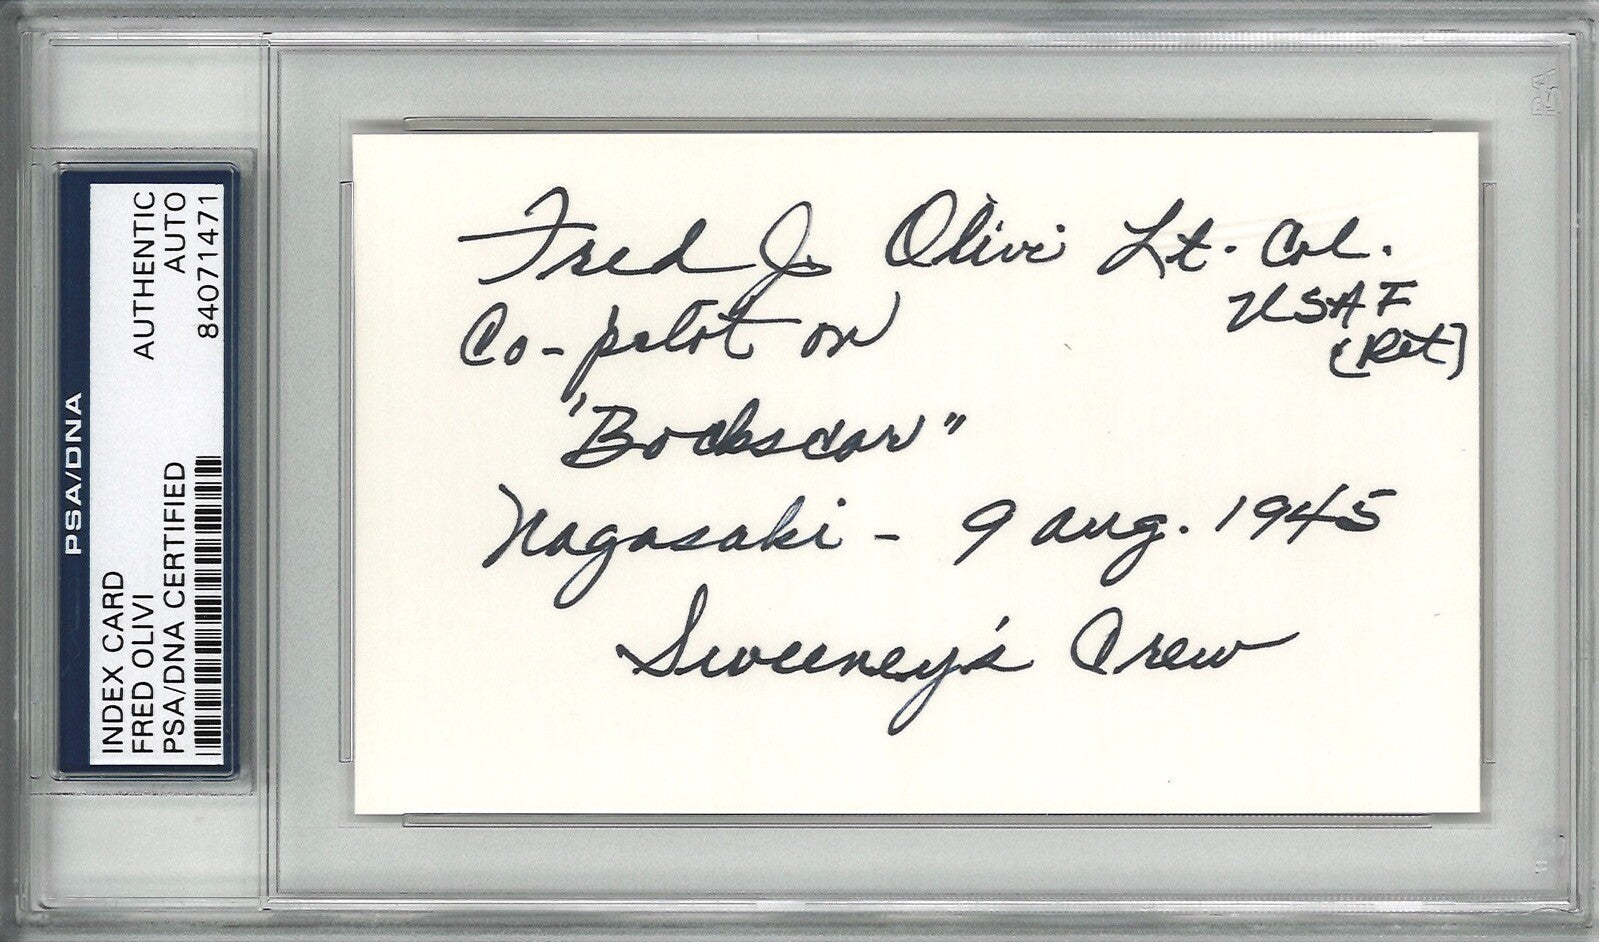 PSA/DNA
INDEX CARD
FRED OLIVI
PSA/DNA CERTIFIED
AUTHENTIC
AUTO
84071471
Fred J. Olivi Lt. Col.
USAF
(Ret)
Co-pilot on
"Bockscar"
Nagasaki - 9 Aug. 1945
Sweeney's Crew
PSA